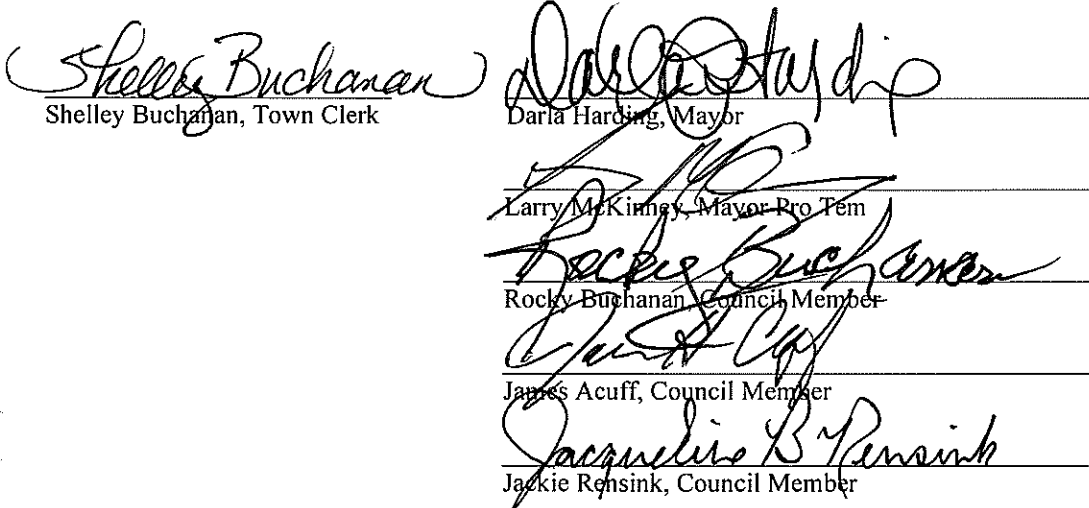 Shelley Buchanan
Shelley Buchanan, Town Clerk
Darla Harding
Darla Harding, Mayor
Larry McKinney, Mayor Pro Tem
Rocky Buchanan
Rocky Buchanan, Council Member
James Acuff, Council Member
Jacqueline B Rensink
Jackie Rensink, Council Member